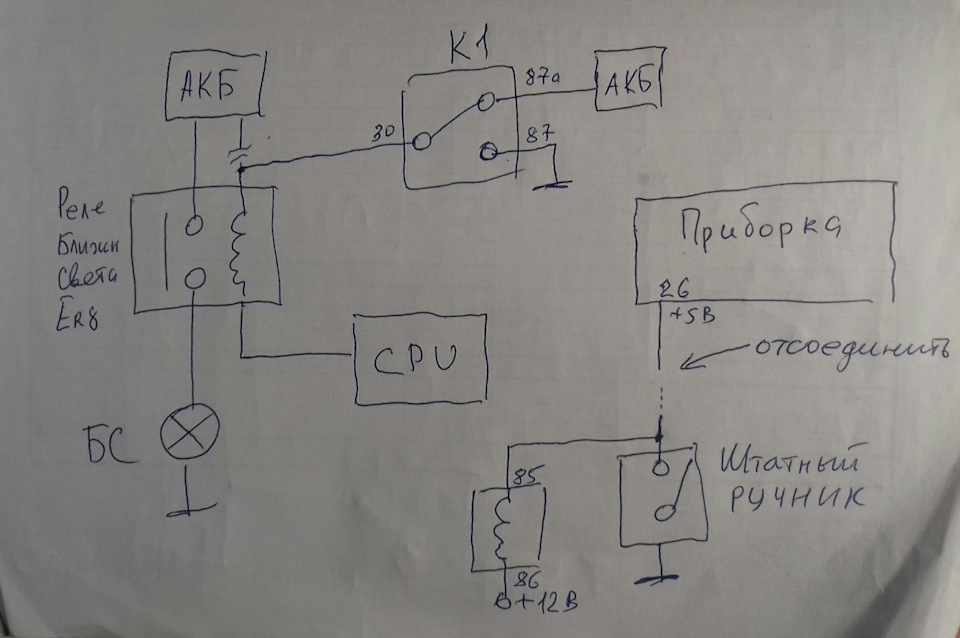 K1
АКБ
87а
АКБ
30
87
Реле
Ближн
Света
ER8
Приборка
26
+5В
отсоединить
CPU
БС
85
Штатный
РУЧНИК
86
+12В